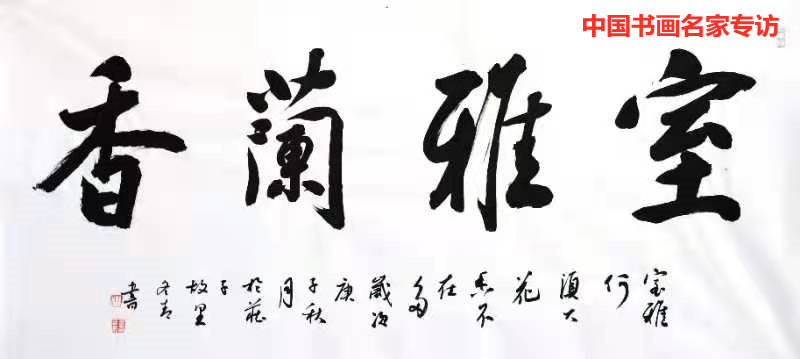 中国书画名家专访
室雅蘭香
室雅
何
須大
花
香不
在
多
歲次
庚
子秋
月
於莊
子
故里
書